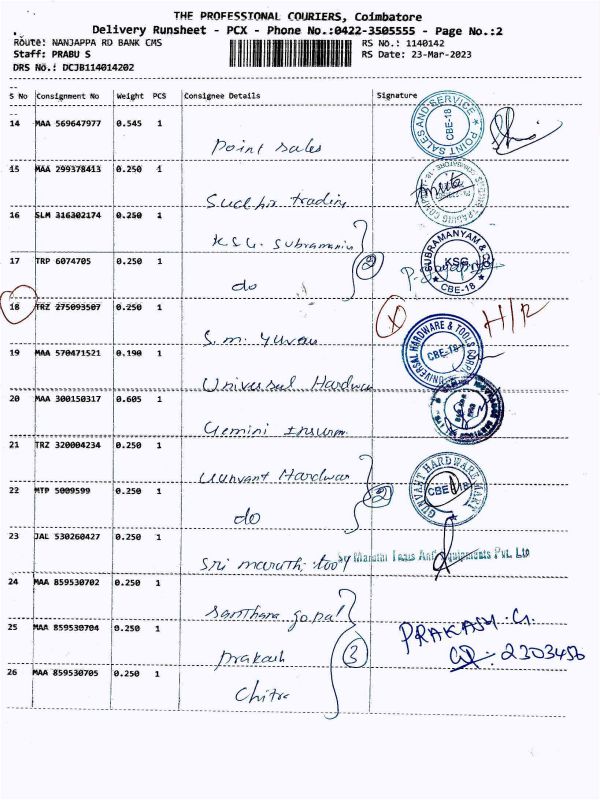 THE PROFESSIONAL COURIERS, Coimbatore
Delivery Runsheet - PCX - Phone No.:0422-3505555 - Page No.:2
Route: NANJAPPA RD BANK CMS RS No.: 1140142
Staff: PRABU S RS Date: 23-Mar-2023
DRS No.: DCJB114014202
S No Consignment No Weight PCS Consignee Details Signature
14 MAA 569647977 0.545 1
Point Sales
POINT SALES AND SERVICE CBE-18
15 MAA 299378413 0.250 1
Sudhir trading
16 SLM 316302174 0.250 1
K.S.G. Subramaniam
SUBRAMANYAM & KSG CBE-18
17 TRP 6074705 0.250 1
do 2
18 TRZ 275093507 0.250 1
S.M. Yuvan
X H/R
19 MAA 570471521 0.190 1
Universal Hardwar
UNIVERSAL HARDWARE & TOOLS CORPN CBE-18
20 MAA 300150317 0.605 1
Gemini Insurn
21 TRZ 320004234 0.250 1
Gunvant Hardwar
GUNVANT HARDWARE MART CBE 18
22 MTP 5009599 0.250 1
do 2
23 JAL 530260427 0.250 1
Sri maruthi tool
Sri Maruthi Tools And Equipments Pvt. Ltd
24 MAA 859530702 0.250 1
Santhana gopal
25 MAA 859530704 0.250 1
prakash 3
PRAKASH. G.
2303456
26 MAA 859530705 0.250 1
Chitra